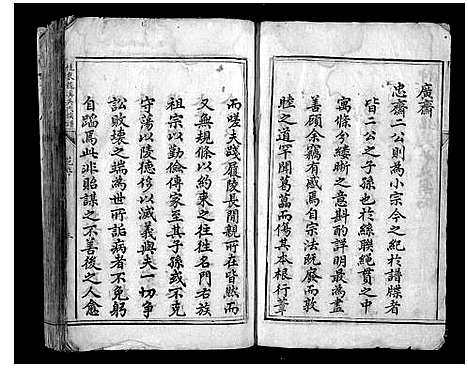 廣齋
忠齋二公則為小宗今之紀於譜牒者
皆二公之子孫也於絲聯繩貫之中
寓條分縷晰之意斟酌詳明最為盡
善顧余竊有感焉自宗法既廢而敦
睦之道罕聞葛藟而傷其本根行葦
而嗟夫踐履陵長閒親所在皆然而
又無規條以約束之往往名門右族
祖宗以勤儉傳家至其子孫或不克
守蕩以陵德侈以滅義與夫一切爭
訟敗壞之端為世所詬病者不免躬
自蹈焉此非貽謀之不善後之人愈